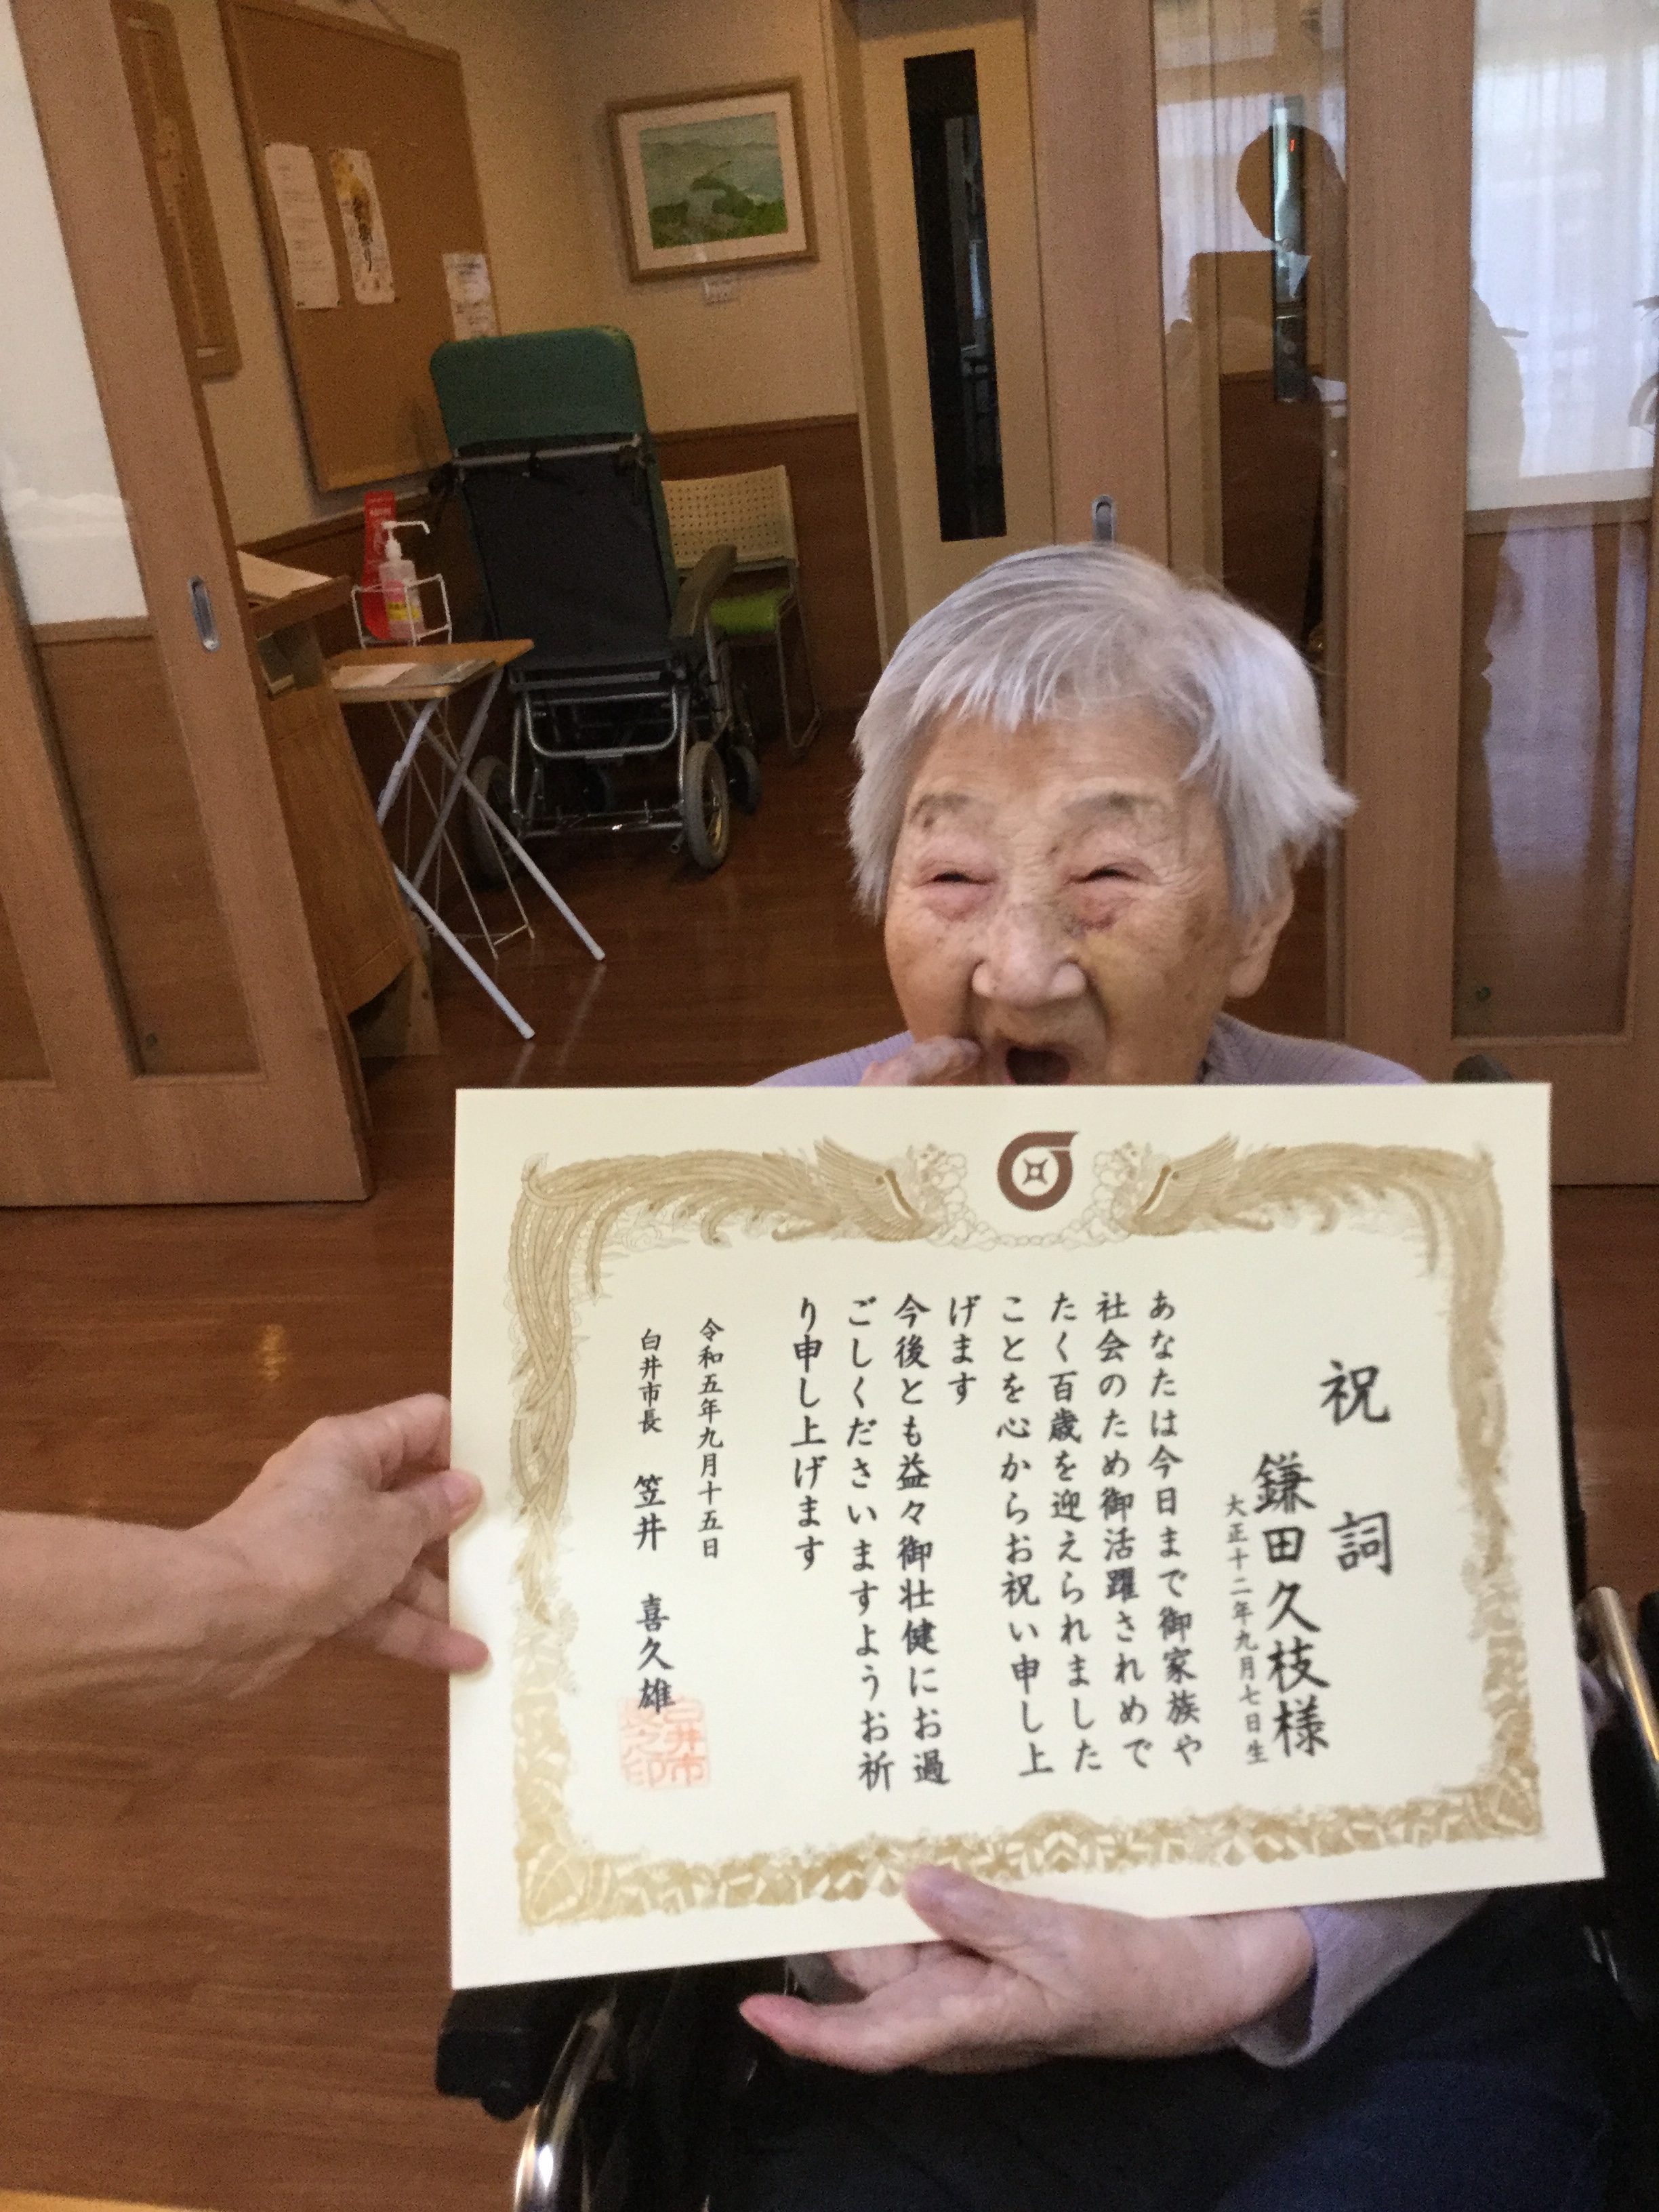 祝詞
鎌田久枝様
大正十二年九月七日生
あなたは今日まで御家族や
社会のため御活躍されめで
たく百歳を迎えられました
ことを心からお祝い申し上
げます
今後とも益々御壮健にお過
ごしくださいますようお祈
り申し上げます
令和五年九月十五日
白井市長 笠井 喜久雄
白井市
長之印